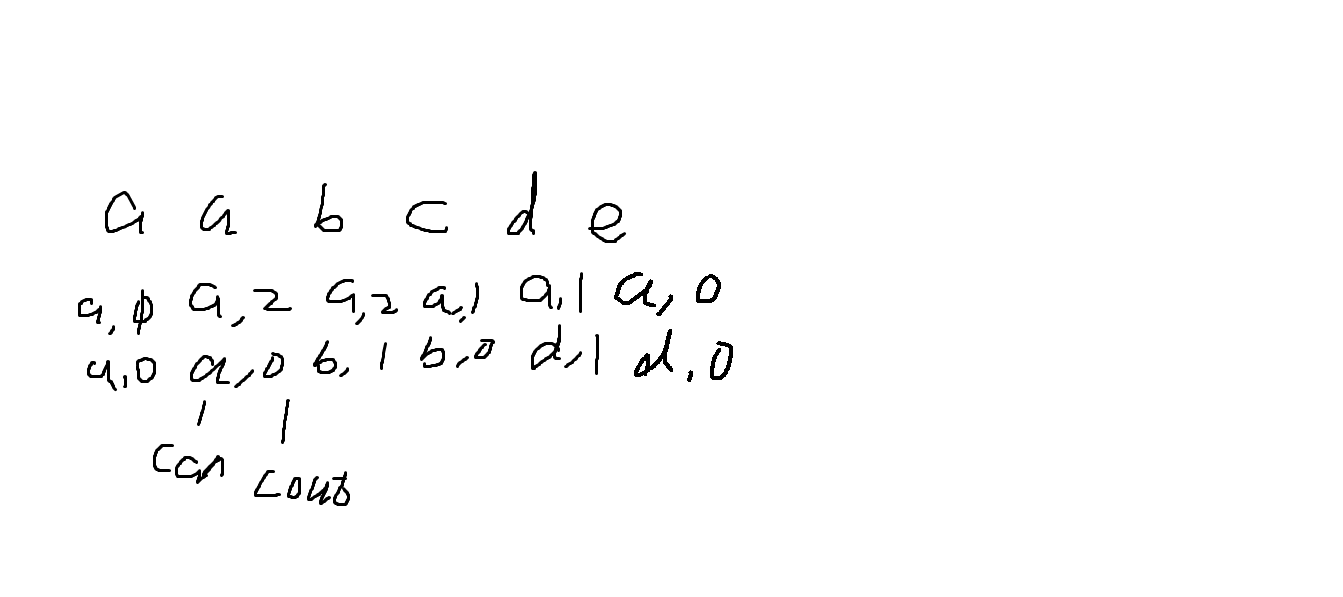 a a b c d e
a,0 a,2 a,2 a,1 a,1 a,0
a,0 a,0 b,1 b,0 d,1 d,0
can cout